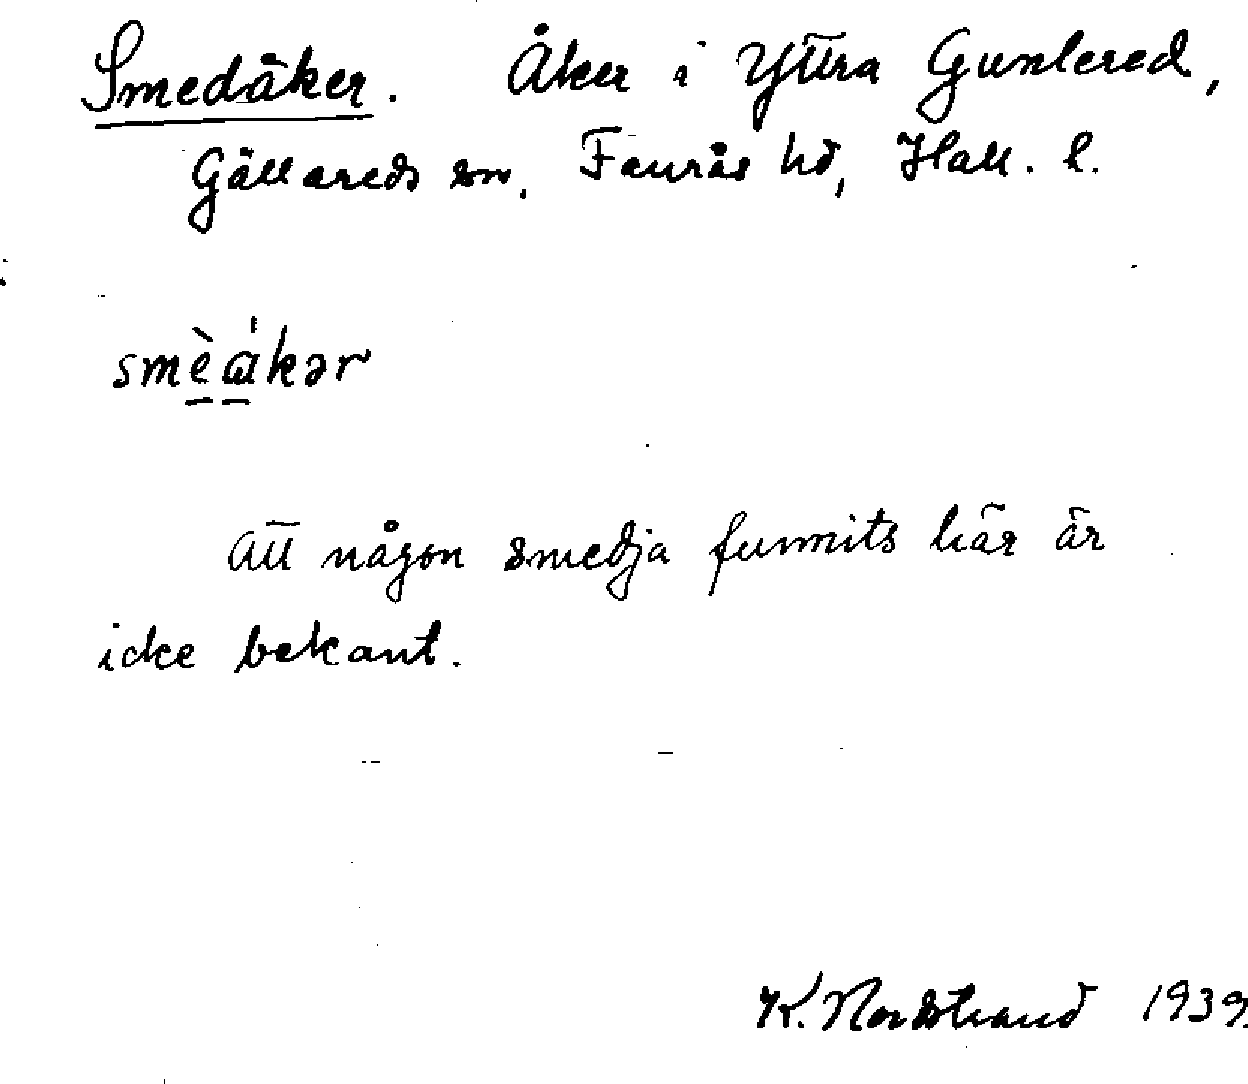 Smedåker. Åker i Yttra Gunlered,
Gällareds sn, Faurås hd, Hall. l.
smèåkər
Att någon smedja funnits här är
icke bekant.
K. Nordstrand 1939.